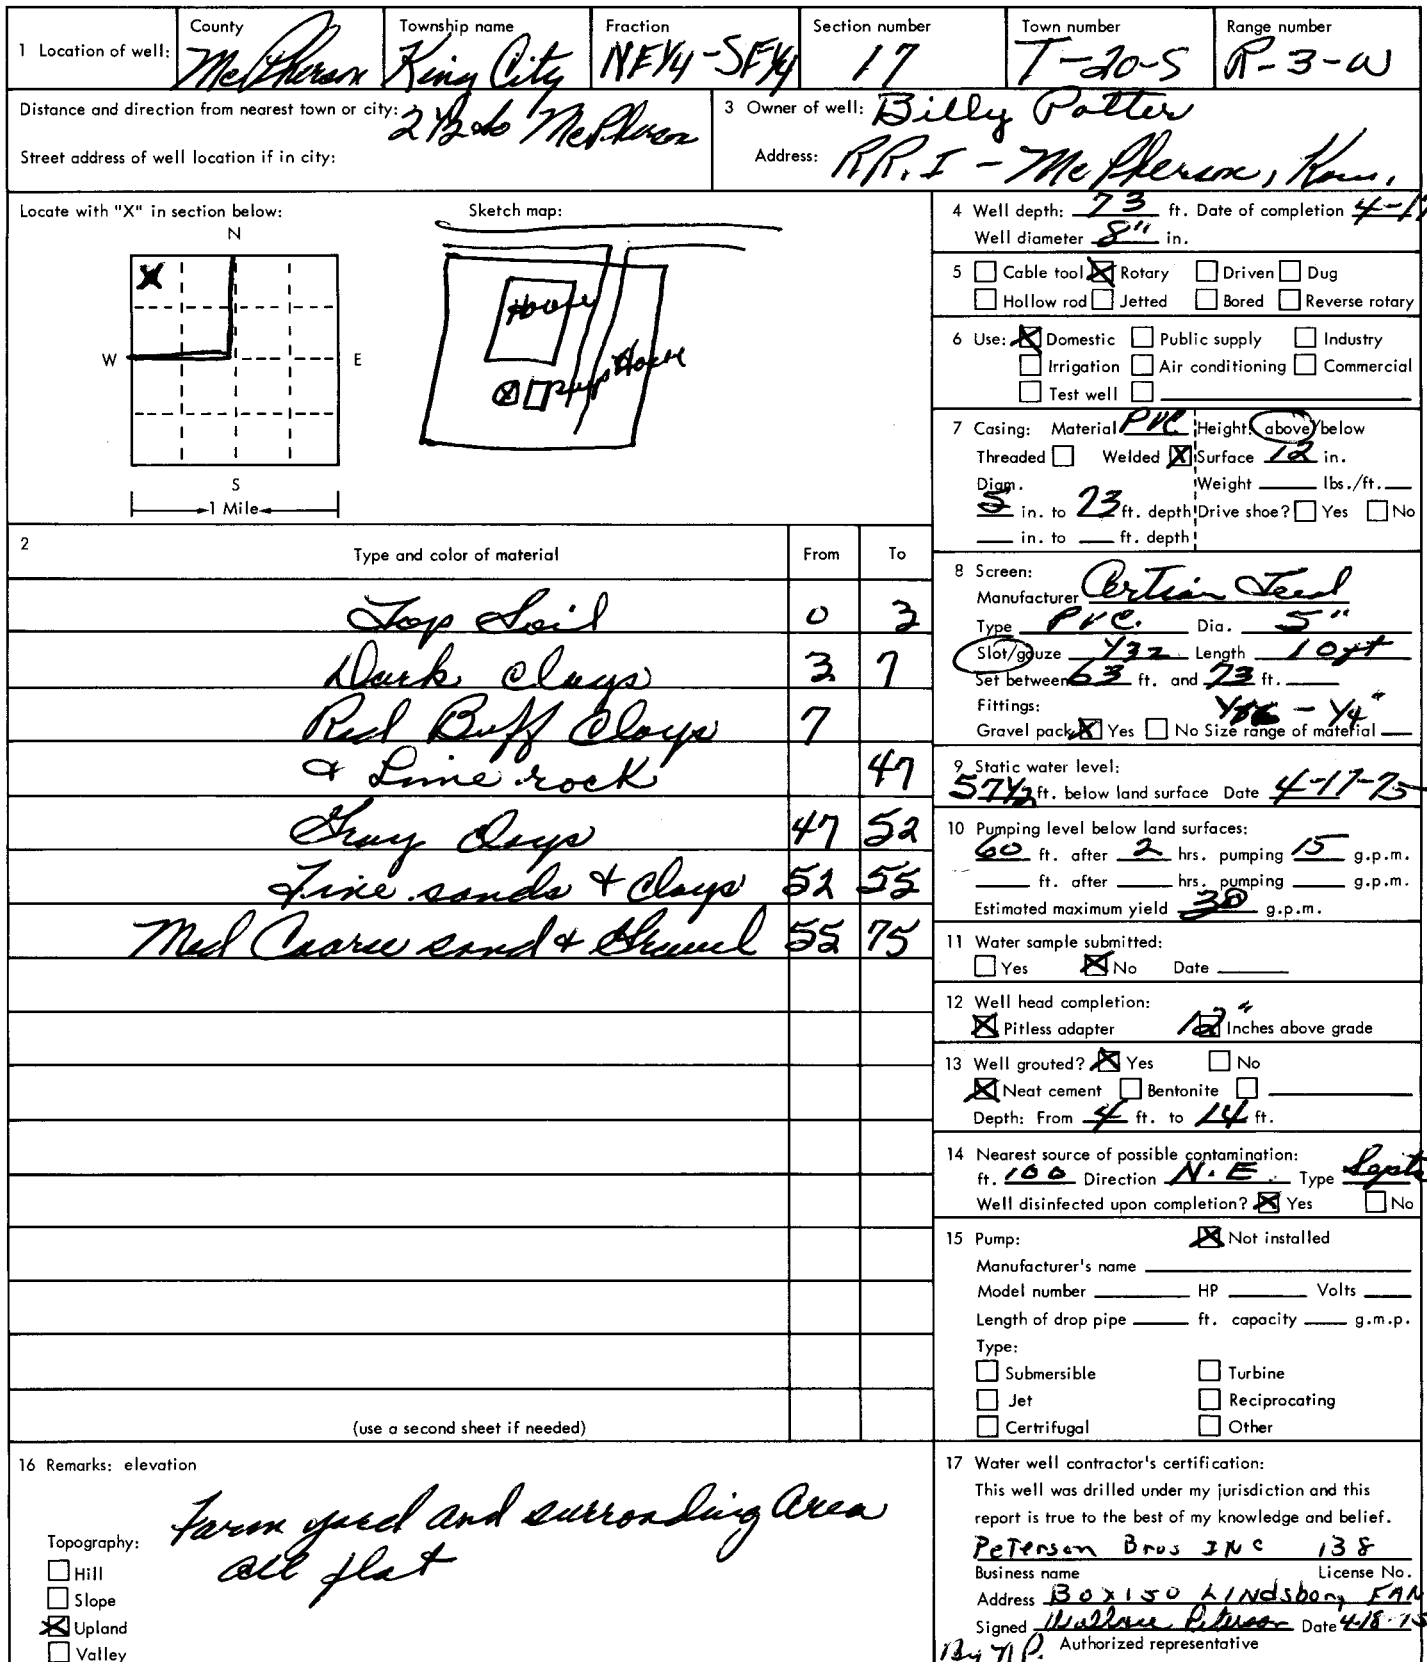 1 Location of well:
County
McPherson
Township name
King City
Fraction
NE¼-SE¼
Section number
17
Town number
T-20-S
Range number
R-3-W
Distance and direction from nearest town or city: 2½ so McPherson
Street address of well location if in city:
3 Owner of well: Billy Potter
Address: RR. I - McPherson, Kans,
Locate with "X" in section below:
N
X
W
E
S
1 Mile
Sketch map:
House
X Pump House
4 Well depth: 73 ft. Date of completion 4-17
Well diameter 8" in.
5 Cable tool X Rotary Driven Dug
Hollow rod Jetted Bored Reverse rotary
6 Use: X Domestic Public supply Industry
Irrigation Air conditioning Commercial
Test well
7 Casing: Material PVC Height: above/below
Threaded Welded X Surface 12 in.
Diam. Weight lbs./ft.
5 in. to 73 ft. depth Drive shoe? Yes No
in. to ft. depth
2
Type and color of material From To
Top Soil 0 3
Dark Clays 3 7
Red Buff Clays 7
& Lime rock 47
Gray Clays 47 52
Fine sands & Clays 52 55
Med Coarse sand & Gravel 55 75
(use a second sheet if needed)
8 Screen:
Manufacturer Certian Teed
Type PVC. Dia. 5"
Slot/gouze 1/32 Length 10 ft
Set between 63 ft. and 73 ft.
Fittings: - ¼"
Gravel pack X Yes No Size range of material
9 Static water level:
57½ ft. below land surface Date 4-17-75
10 Pumping level below land surfaces:
60 ft. after 2 hrs. pumping 15 g.p.m.
ft. after hrs. pumping g.p.m.
Estimated maximum yield 30 g.p.m.
11 Water sample submitted:
Yes X No Date
12 Well head completion:
X Pitless adapter 12" Inches above grade
13 Well grouted? X Yes No
X Neat cement Bentonite
Depth: From 4 ft. to 14 ft.
14 Nearest source of possible contamination:
ft. 100 Direction N.E. Type Septi
Well disinfected upon completion? X Yes No
15 Pump: X Not installed
Manufacturer's name
Model number HP Volts
Length of drop pipe ft. capacity g.m.p.
Type:
Submersible Turbine
Jet Reciprocating
Certrifugal Other
16 Remarks: elevation
Farm yard and surronding Area
all flat
Topography:
Hill
Slope
X Upland
Valley
17 Water well contractor's certification:
This well was drilled under my jurisdiction and this
report is true to the best of my knowledge and belief.
Peterson Bros INC 138
Business name License No.
Address BOX150 LINdsborg
Signed Wallace Peterson Date 4-18-75
By N.P. Authorized representative